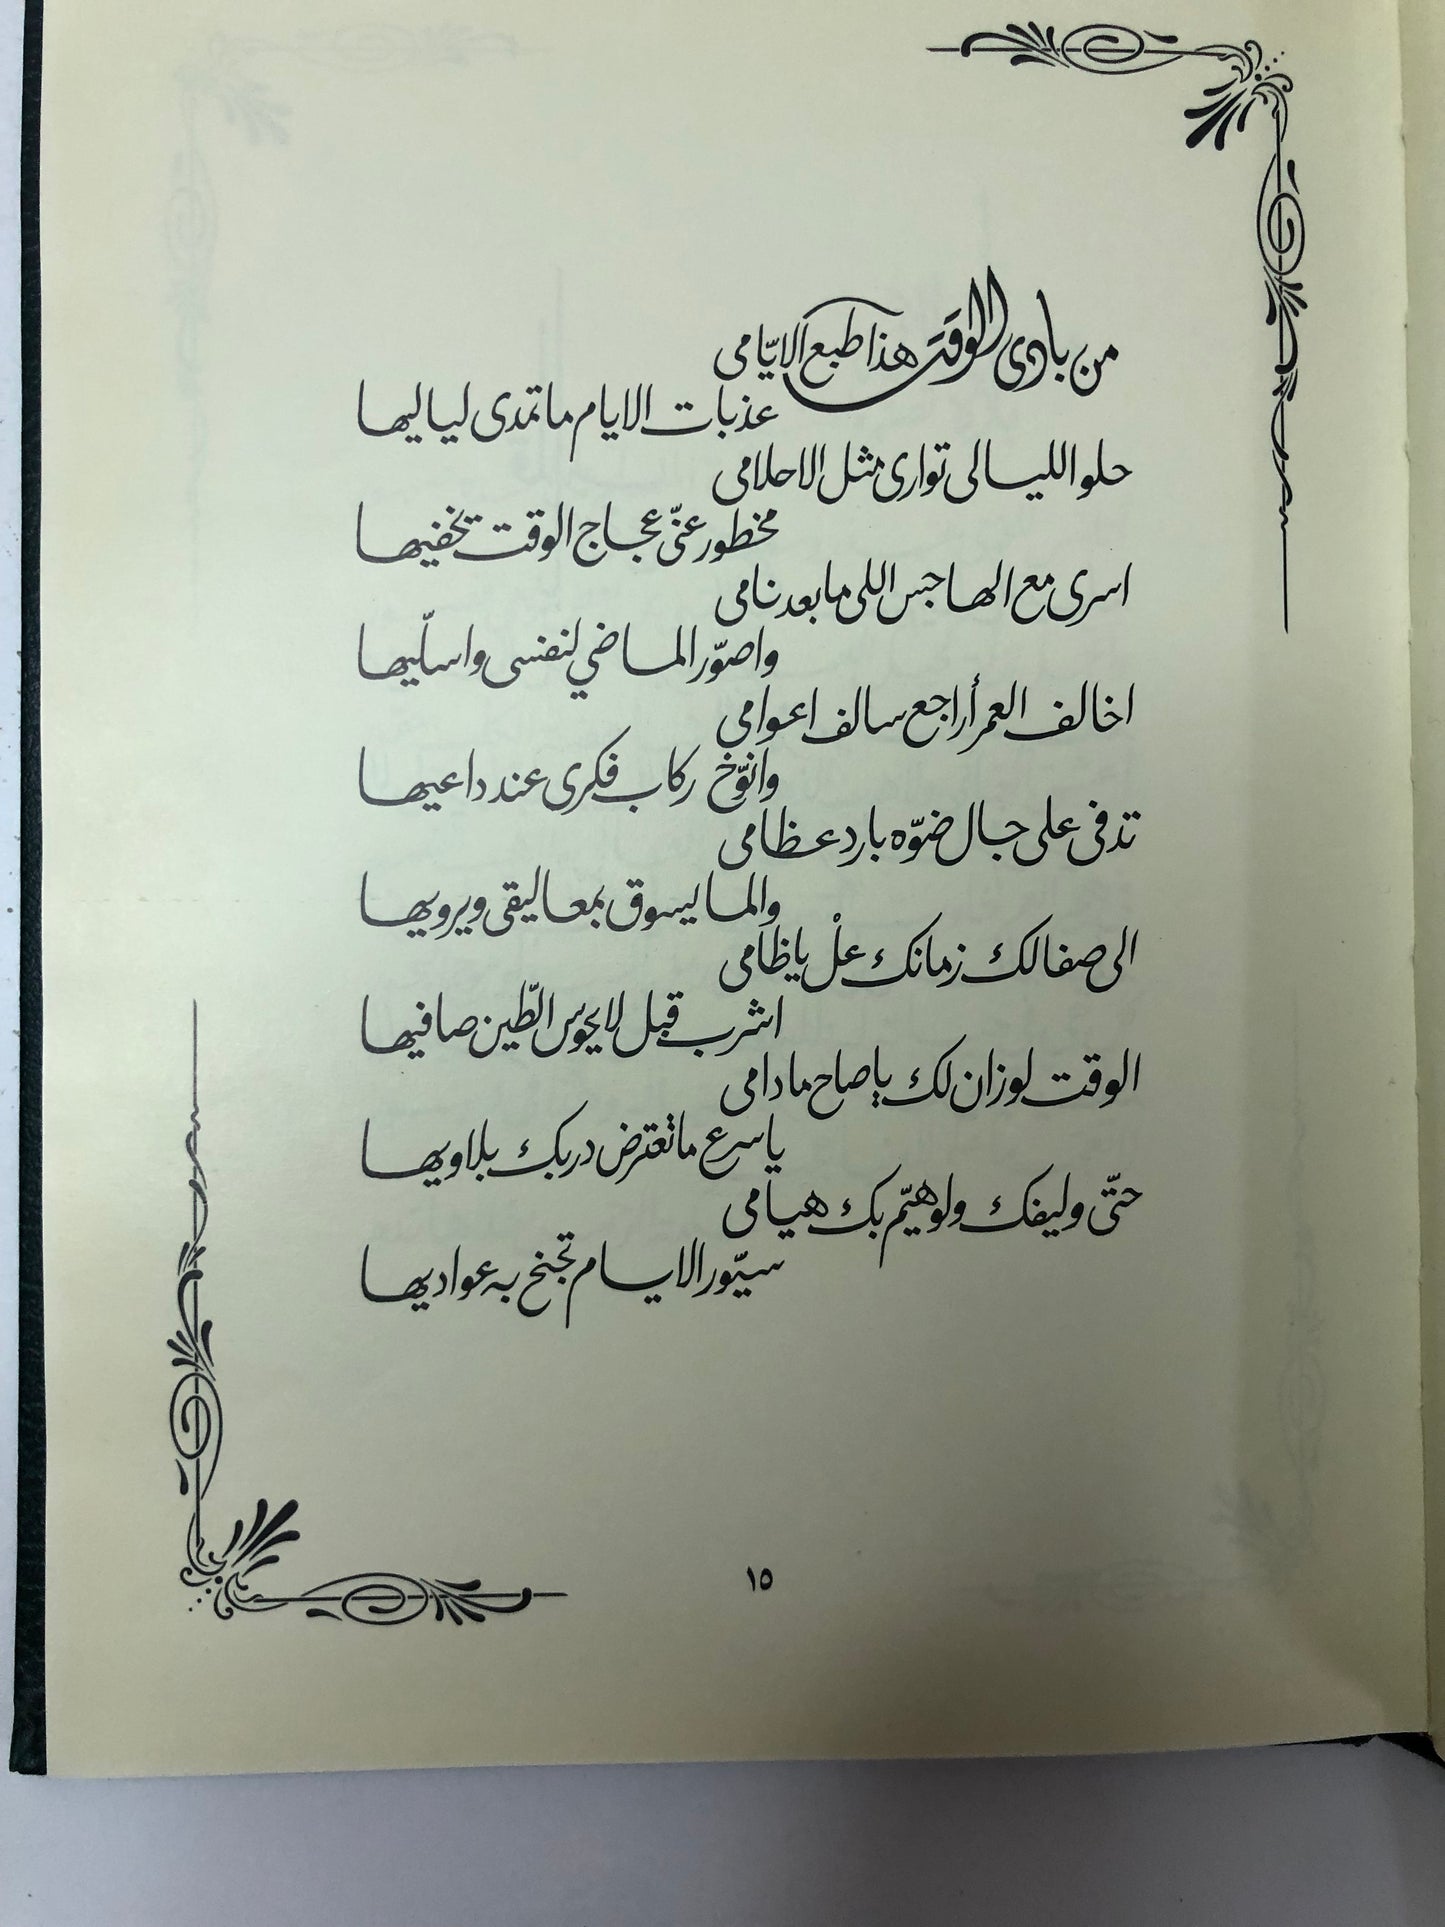 من بادى الوقت هذا طبع الايّامى
عذبات الايام ماتمدى لياليها
حلو الليالى توارى مثل الاحلامى
مخطور عنّى عجاج الوقت تخفيها
اسرى مع الهاجس اللى مابعد نامى
واصوّر الماضي لنفسى واسلّيها
اخالف العمر أراجع سالف اعوامى
وانوّخ ركاب فكرى عند داعيها
تدفى على جال ضوّه بارد عظامى
والما يسوق بمعاليقى ويرويها
الى صفالك زمانك علْ ياظامى
اشرب قبل لايحوس الطّين صافيها
الوقت لوزان لك ياصاح مادامى
ياسرع ماتعترض دربك بلاويها
حتّى وليفك ولوهيّم بك هيامى
سيّور الايام تجنح به عواديها
١٥